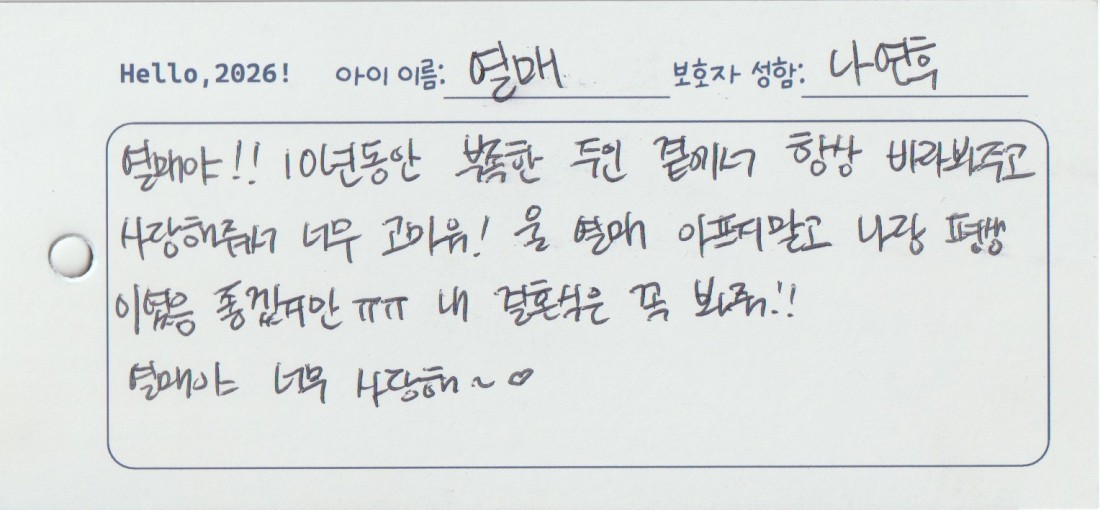 Hello, 2026! 아이 이름: 열매 보호자 성함: 나연흑
열매야!! 10년동안 부족한 주인 곁에서 항상 바라봐주고
사랑해줘서 너무 고마유! 울 열매 아프지말고 나랑 평생
이였음 좋겠지만 ㅠㅠ 내 결혼식은 꼭 봐줘!!
열매야 너무 사랑해~ ♡